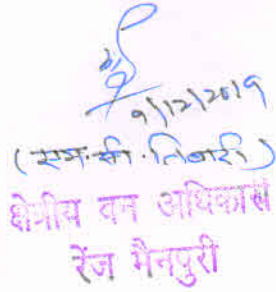 9/12/2019
(एम.सी.तिवारी)
क्षेत्रीय वन अधिकारी
रेंज मैनपुरी